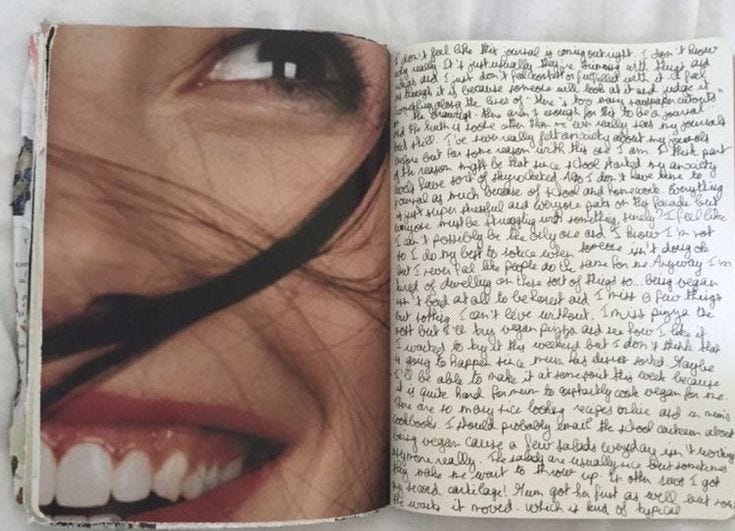 I don't feel like this journal is coming out right. I don't know
why really. It's just usually they're brimming with things and
and I just don't feel comfort or fulfilled with it. I feel
as though it is because someone will look at it and judge it.
Something along the lines of "there's too many newspaper cutouts"
or "the drawings there aren't enough for this to be a journal."
and the truth is no one other than me ever really sees my journals
but still. I've never really felt anxiety about my journals
before but for some reason with this one I am. I think part
of the reason might be that since school started my anxiety
levels have sort of skyrocketed. Also I don't have time to
journal as much because of school and homework. Everything
is just super stressful and everyone puts on this facade but
everyone must be struggling with something, surely? I feel like
I can't possibly be the only one and I know I'm not
so I do my best to notice when someone isn't doing ok
but I never feel like people do the same for me. Anyway I'm
tired of dwelling on these sort of things so... being vegan
isn't bad at all to be honest and I miss a few things
but nothing I can't live without. I miss pizza the
most but I'll try vegan pizza and see how I like it
I wanted to try it this weekend but I don't think that
is going to happen since mum has dinner sorted. Maybe
I'll be able to make it at some point this week because
it is quite hard for mum to explicitly cook vegan for me.
There are so many nice looking recipes online and in mum's
cookbooks. I should probably email the school canteen about
being vegan cause a few salads everyday isn't working
anymore really. The salads are usually nice but sometimes
they make me want to throw up. In other news I got
my second cartilage! Mum got her first as well but now
she wants it moved. which is kind of typical